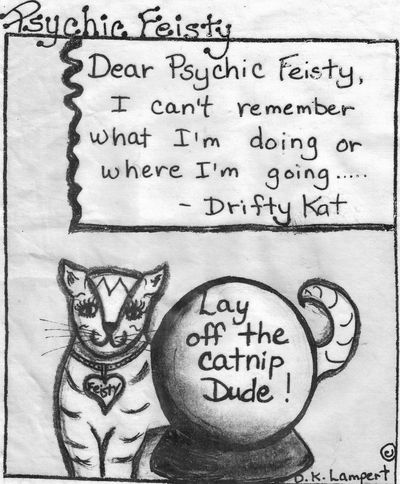 Psychic Feisty
Dear Psychic Feisty,
I can't remember
what I'm doing or
where I'm going.....
- Drifty Kat
Lay
off the
catnip
Dude!
Feisty
D.K. Lampert